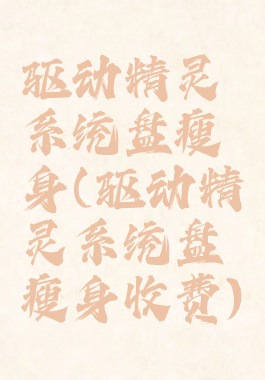 驱动精灵
系统盘瘦
身(驱动精
灵系统盘
瘦身收费)